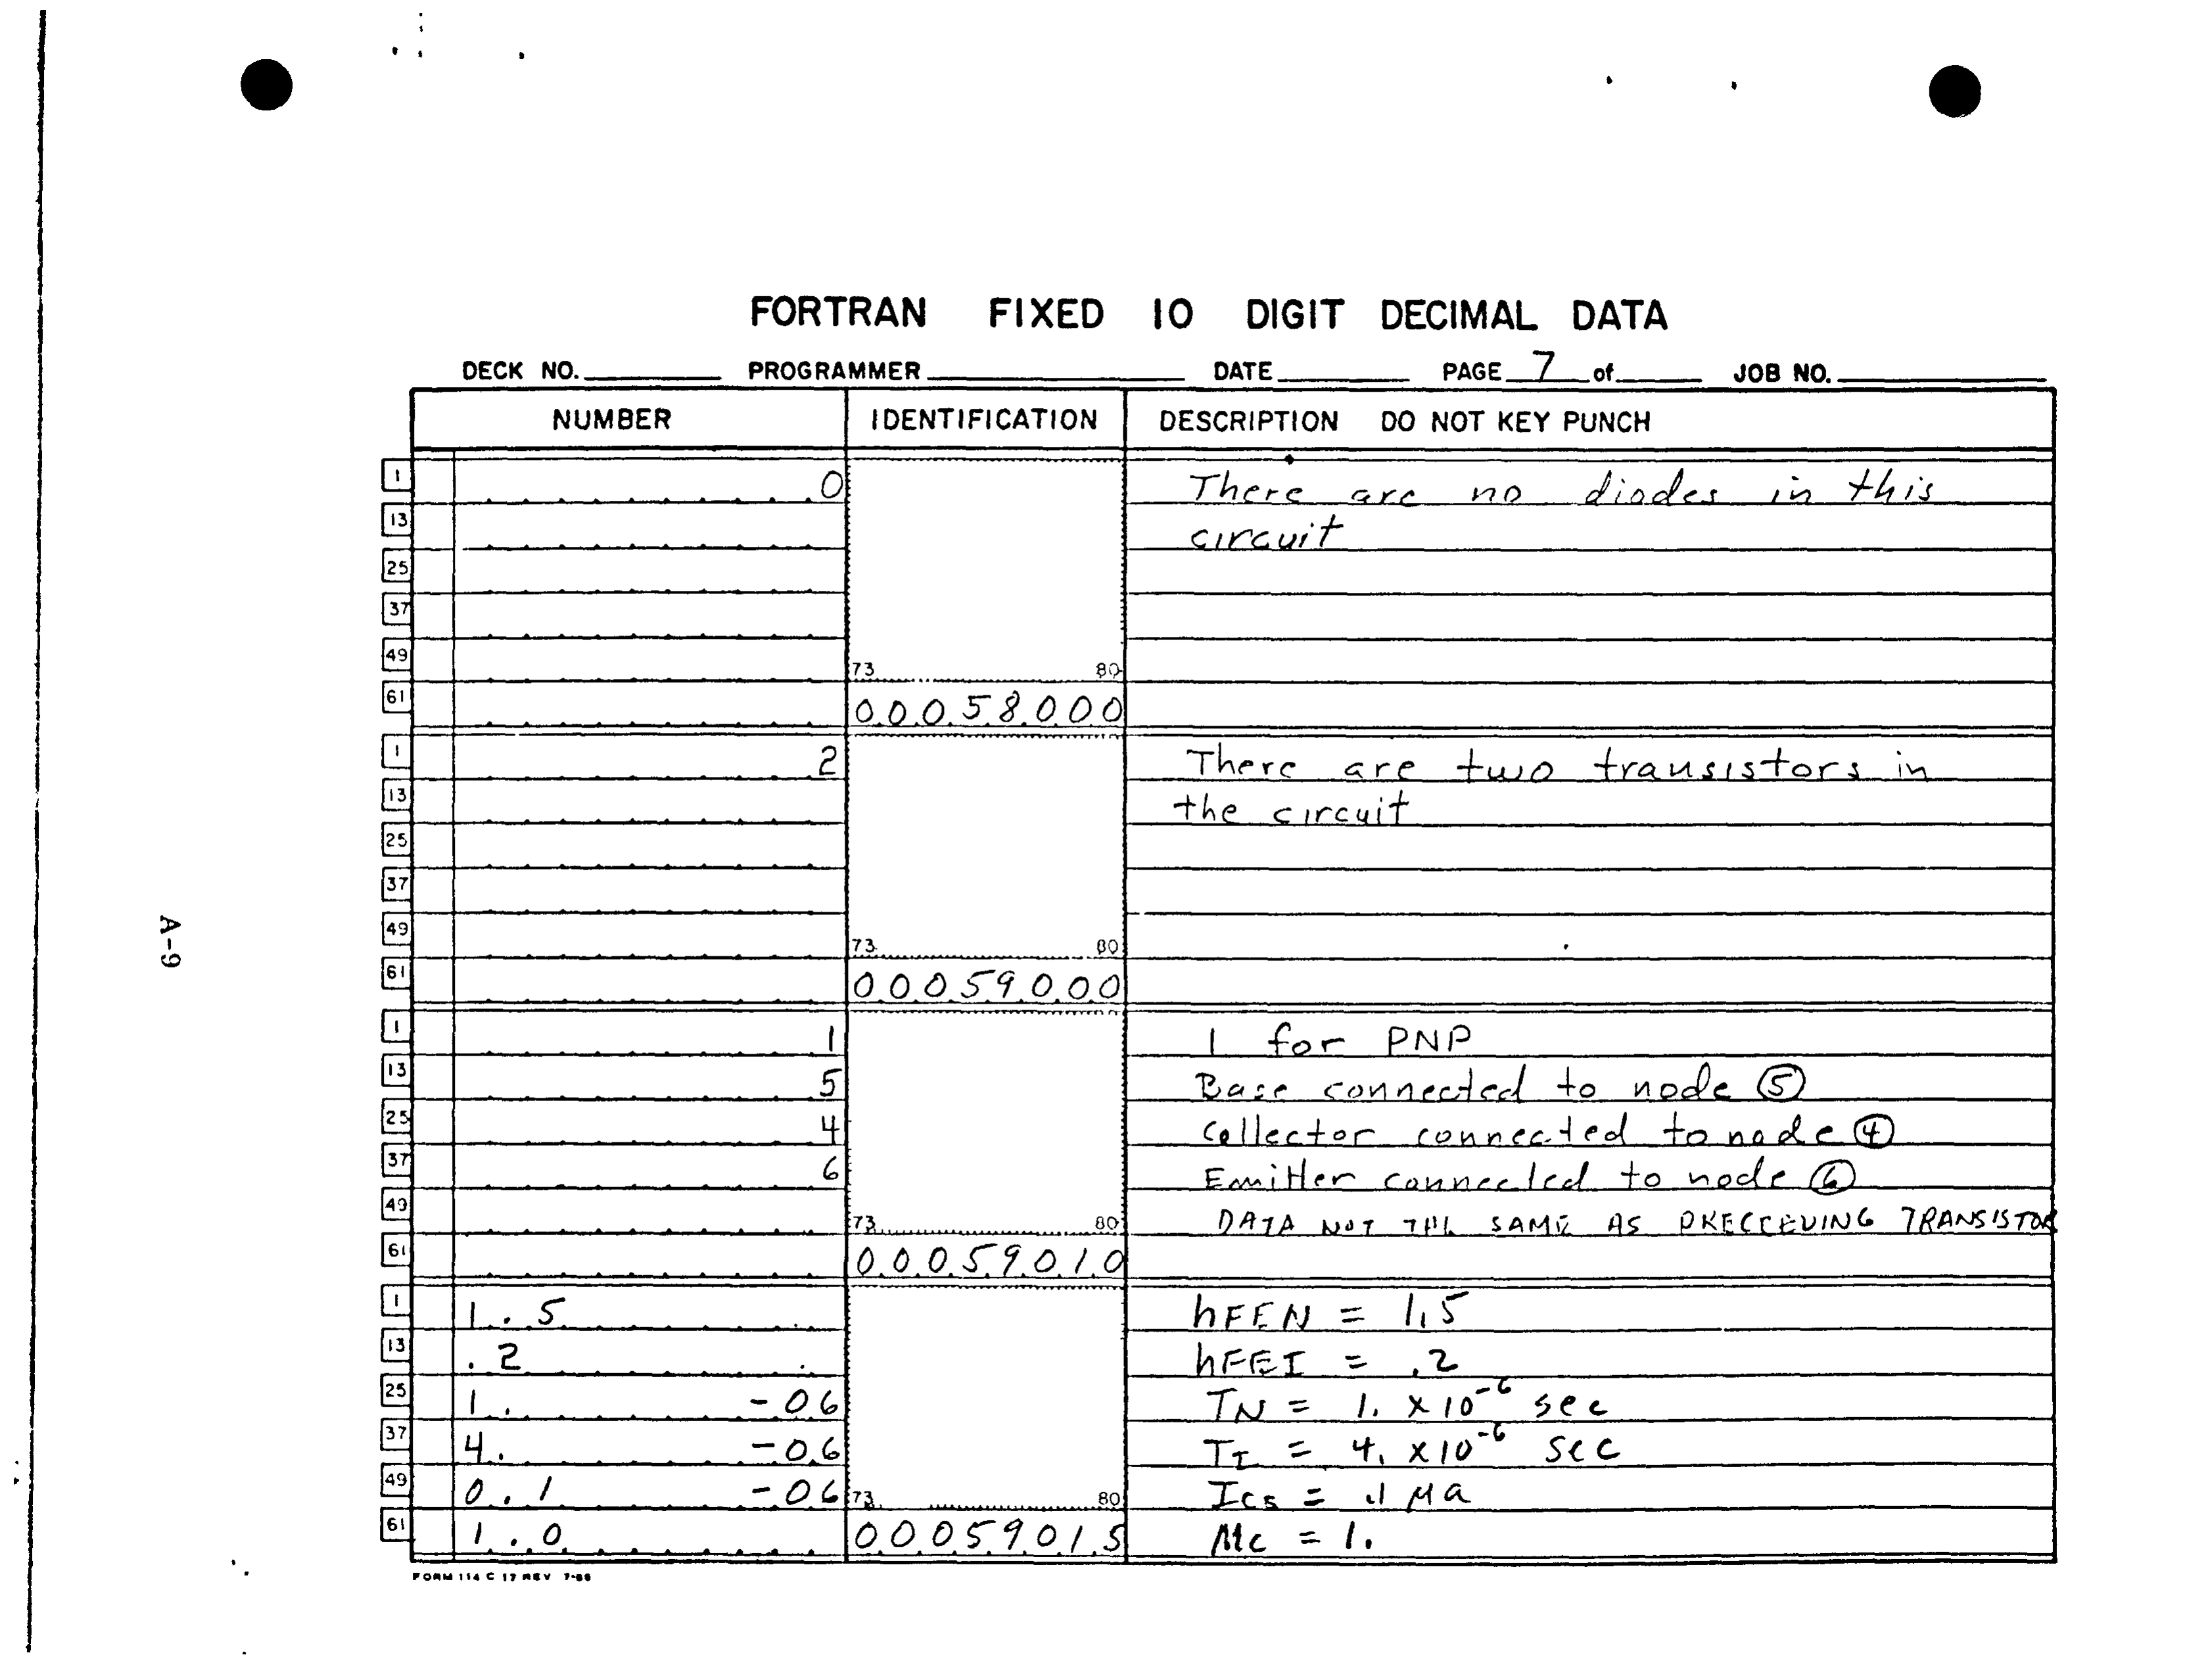 FORTRAN FIXED 10 DIGIT DECIMAL DATA
DECK NO. PROGRAMMER DATE PAGE 7 of JOB NO.
NUMBER IDENTIFICATION DESCRIPTION DO NOT KEY PUNCH
1 0 There are no diodes in this
13 circuit
25
37
49 73 80
61 00058000
1 2 There are two transistors in
13 the circuit
25
37
49 73 80
61 00059000
1 1 1 for PNP
13 5 Base connected to node 5
25 4 Collector connected to node 4
37 6 Emitter connected to node 6
49 73 80 DATA NOT THE SAME AS PRECEEDING TRANSISTOR
61 00059010
1 1.5 hFEN = 1.5
13 .2 hFEI = .2
25 1. -06 TN = 1. x10-6 sec
37 4. -06 TI = 4. x10-6 sec
49 0.1 -06 73 80 Ics = .1 Ma
61 1.0 00059015 Mc = 1.
FORM 114 C 17 REV 7-66
A-9